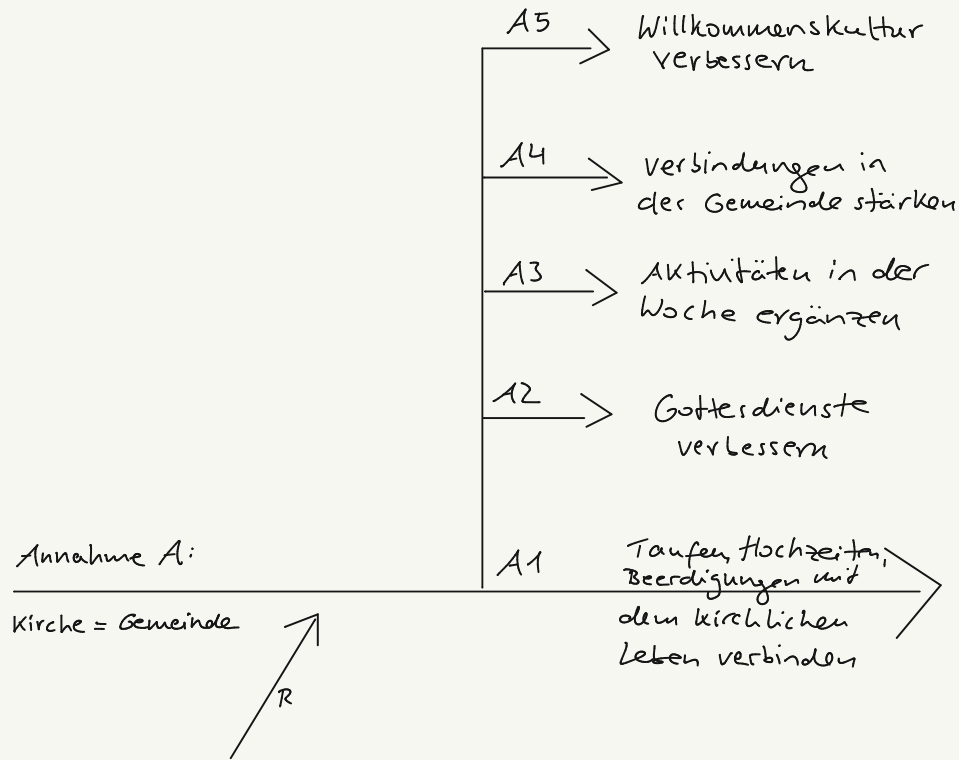 A5
Willkommenskultur
verbessern
A4
Verbindungen in
der Gemeinde stärken
A3
Aktivitäten in der
Woche ergänzen
A2
Gottesdienste
verbessern
Annahme A:
A1
Taufen, Hochzeiten,
Beerdigungen mit
Kirche = Gemeinde
dem kirchlichen
Leben verbinden
R